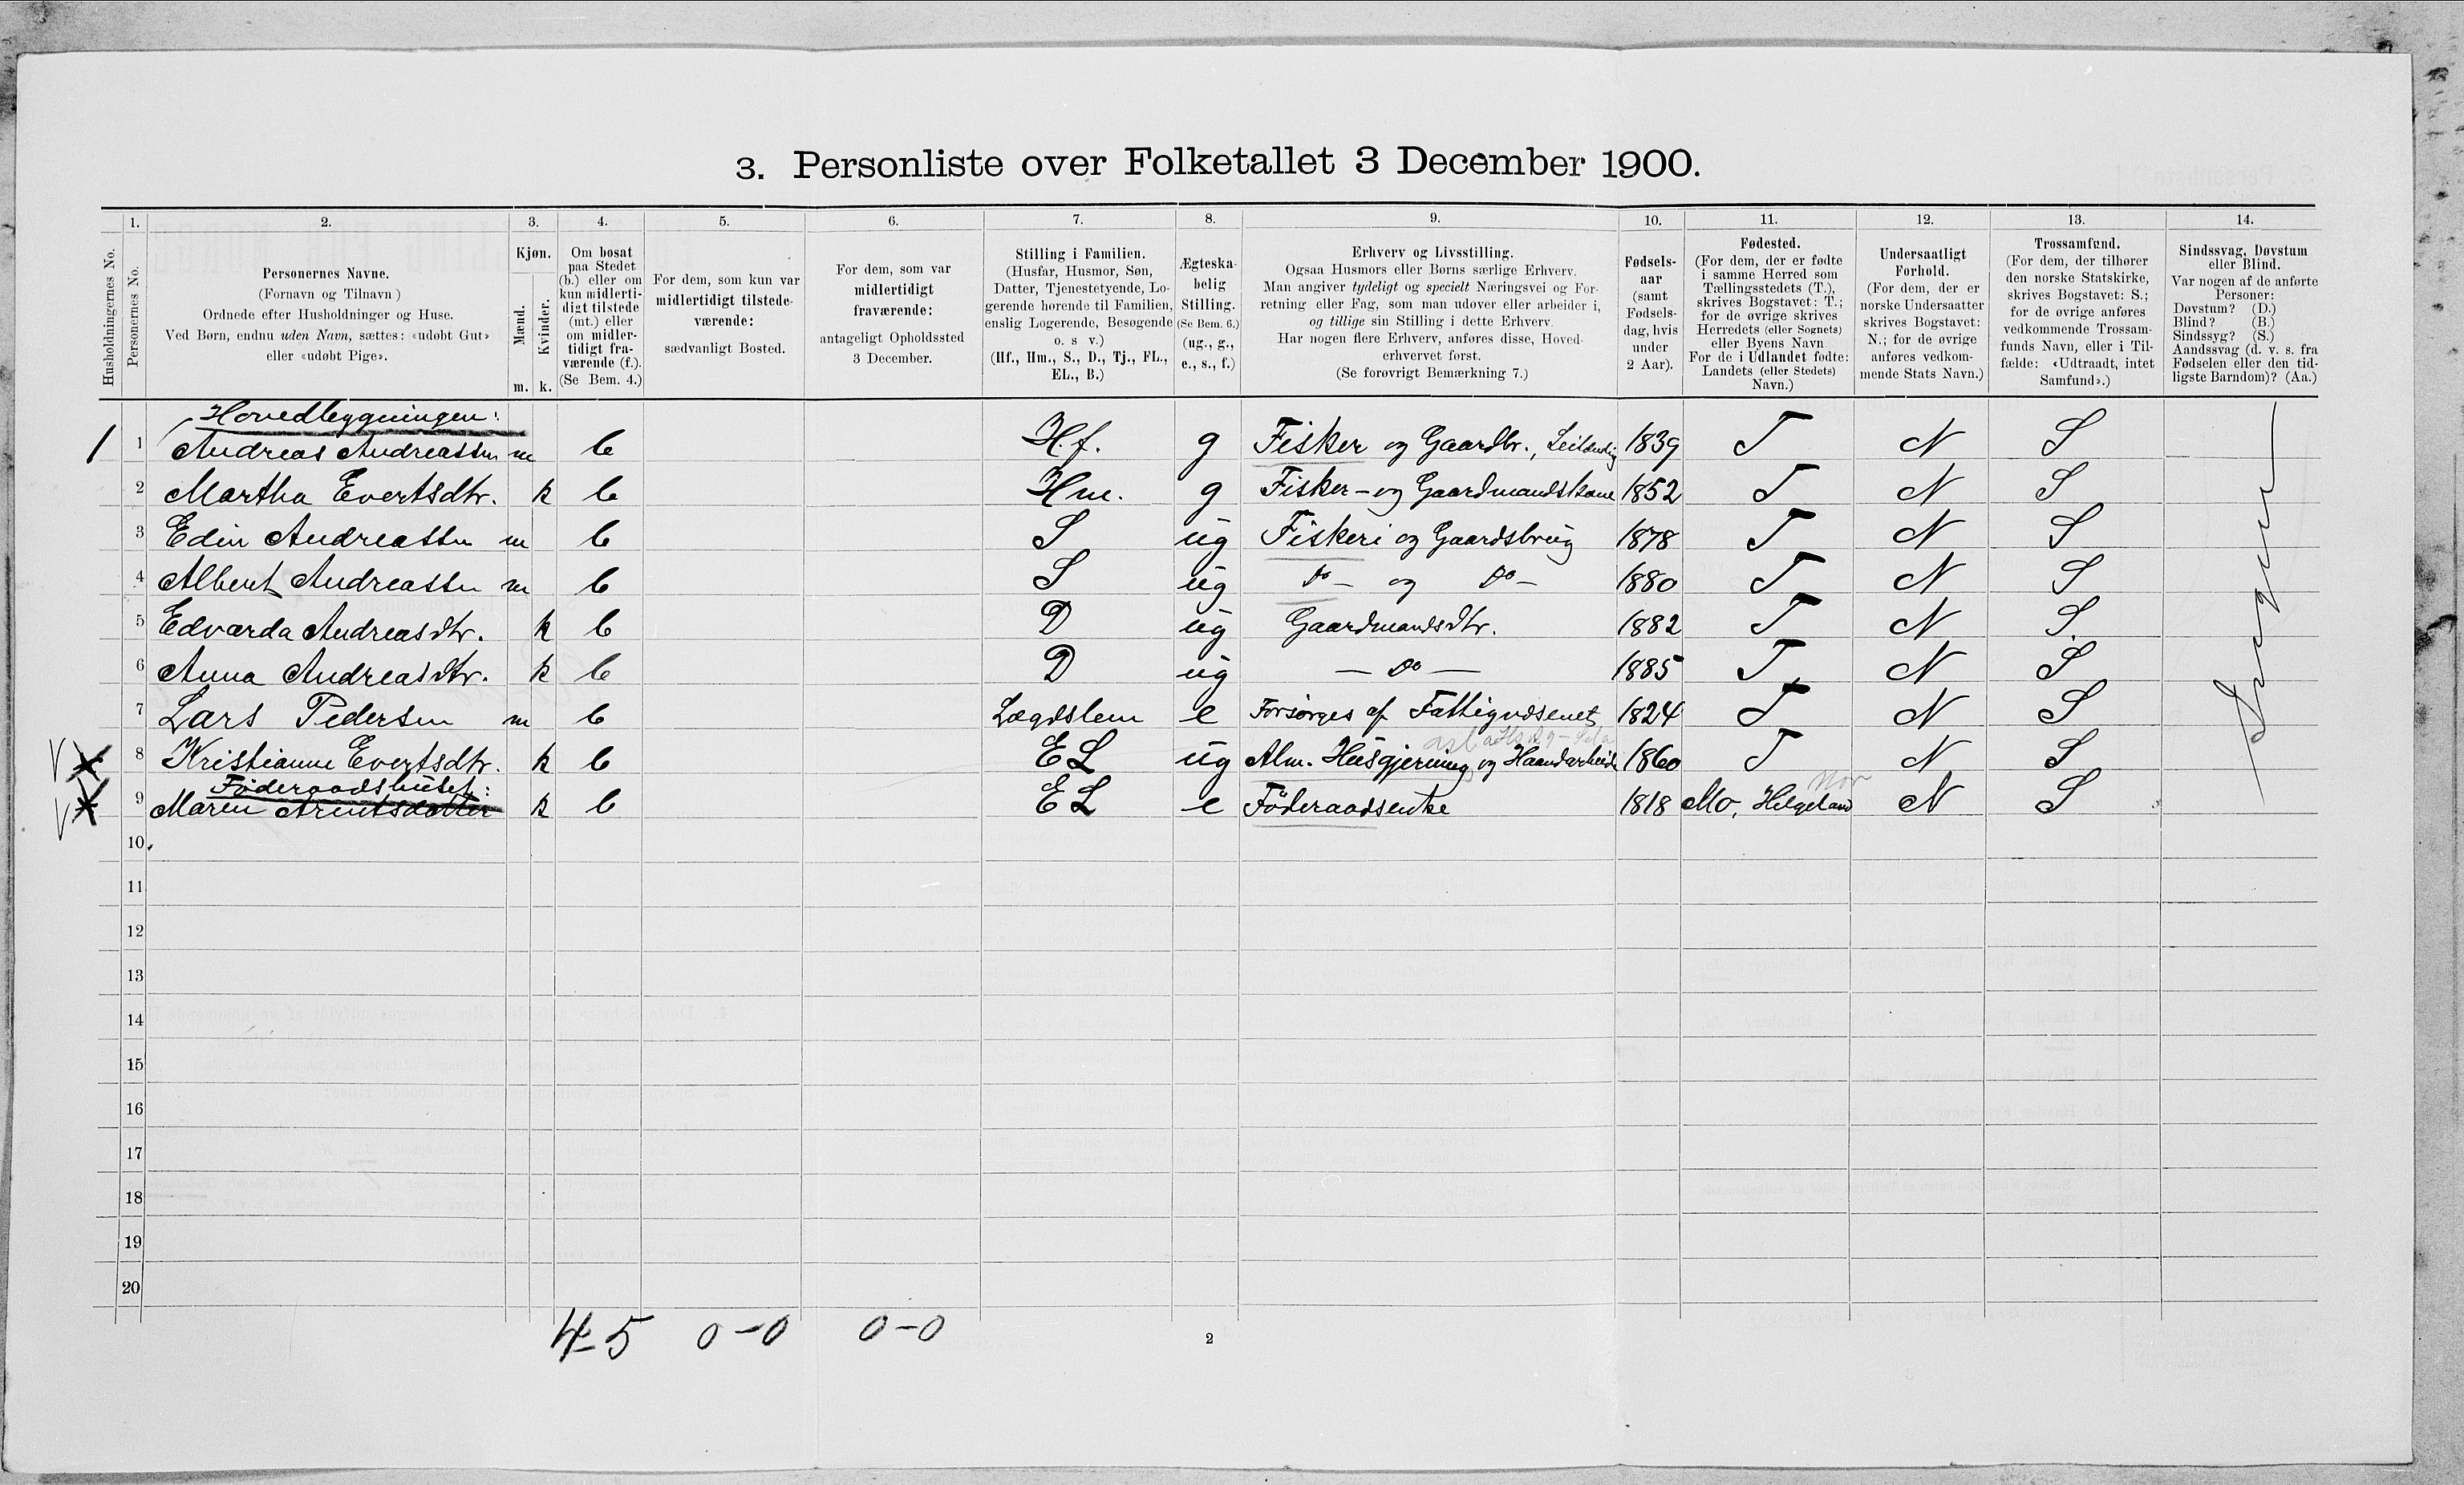 3. Personliste over Folketallet 3 December 1900.
1. 2. 3. 4. 5. 6. 7. 8. 9. 10. 11. 12. 13. 14.
Husholdningernes No.
Personernes No.
Personernes Navne.
(Fornavn og Tilnavn)
Ordnede efter Husholdninger og Huse.
Ved Børn, endnu uden Navn, sættes: «udøbt Gut»
eller «udøbt Pige».
Kjøn.
Mænd.
Kvinder.
m. k.
Om bosat
paa Stedet
(b.) eller om
kun midlerti-
digt tilstede
(mt.) eller
om midler-
tidigt fra-
værende (f.).
(Se Bem. 4.)
For dem, som kun var
midlertidigt tilstede-
værende:
sædvanligt Bosted.
For dem, som var
midlertidigt
fraværende:
antageligt Opholdssted
3 December.
Stilling i Familien.
(Husfar, Husmor, Søn,
Datter, Tjenestetyende, Lo-
gerende hørende til Familien,
enslig Logerende, Besøgende
o. s v.)
(Hf., Hm., S., D., Tj., FL.,
EL., B.)
Ægteska-
belig
Stilling.
(Se Bem. 6.)
(ug., g.,
e., s., f.)
Erhverv og Livsstilling.
Ogsaa Husmors eller Børns særlige Erhverv.
Man angiver tydeligt og specielt Næringsvei og For-
retning eller Fag, som man udøver eller arbeider i,
og tillige sin Stilling i dette Erhverv.
Har nogen flere Erhverv, anføres disse, Hoved-
erhvervet først.
(Se forøvrigt Bemærkning 7.)
Fødsels-
aar
(samt
Fødsels-
dag, hvis
under
2 Aar).
Fødested.
(For dem, der er fødte
i samme Herred som
Tællingsstedets (T.),
skrives Bogstavet: T.;
for de øvrige skrives
Herredets (eller Sognets)
eller Byens Navn
For de i Udlandet fødte:
Landets (eller Stedets)
Navn.)
Undersaatligt
Forhold.
(For dem, der er
norske Undersaatter
skrives Bogstavet:
N.; for de øvrige
anføres vedkom-
mende Stats Navn.)
Trossamfund.
(For dem, der tilhører
den norske Statskirke,
skrives Bogstavet: S.;
for de øvrige anføres
vedkommende Trossam-
funds Navn, eller i Til-
fælde: «Udtraadt, intet
Samfund».)
Sindssvag, Døvstum
eller Blind.
Var nogen af de anførte
Personer:
Døvstum? (D.)
Blind? (B.)
Sindssyg? (S.)
Aandssvag (d. v. s. fra
Fødselen eller den tid-
ligste Barndom)? (Aa.)
Hovedbygningen:
1 1 Andreas Andreassen m b H.f. g Fisker og Gaardbr., Leilænding 1839 T N S
2 Martha Evertsdtr. k b Hm. g Fisker- og Gaardmandskone 1852 T N S
3 Edin Andreassen m b S ug Fiskeri og Gaardsbrug 1878 T N S
4 Albert Andreassen m b S ug Do - og Do - 1880 T N S
5 Edvarda Andreasdtr. k b D ug Gaardmandsdtr. 1882 T N S.
6 Anna Andreasdtr. k b D ug - Do - 1885 T N S
7 Lars Pedersen m b Lægdslem e Forsørges af Fattigvæsenet 1824 T N S
V X 8 Kristianne Evertsdtr. k b EL ug Alm. Husgjerning og Haandarbeide 1860 T N S
Føderaadshuset:
V X 9 Maren Arentsdatter k b EL e Føderaadsenke 1818 Mo, Helgeland N S
Nor
Ingen
10
11
12
13
14
15
16
17
18
19
20
4-5 0-0 0-0
2